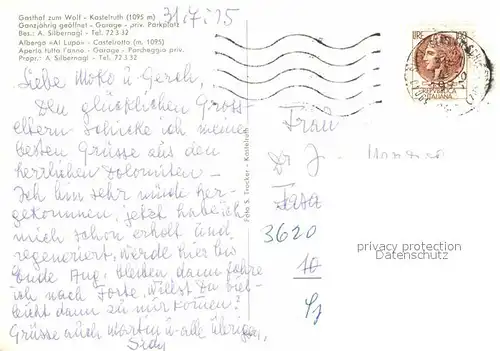 Gasthof zum Wolf - Kastelruth (1095 m)
Ganzjährig geöffnet - Garage - priv. Parkplatz
Bes.: A. Silbernagl - Tel. 72 3 32
Albergo «Al Lupo» - Castelrotto (m. 1095)
Aperto tutto l'anno - Garage - Parcheggio priv.
Propr.: A. Silbernagl - Tel. 72 3 32
31/7/75
LIRE 100
REPUBBLICA
ITALIANA
Liebe Moko u. Geroh.
Den glücklichen Gross-
eltern schicke ich meine
besten Grüsse aus den
herrlichen Dolomiten -
Ich bin sehr müde her-
gekommen, jetzt habe ich
mich schon erholt und
regeneriert, werde hier bis
Ende Aug. bleiben dann fahre
ich nach Forte, willst Du viel-
leicht dann zu mir kommen?
Grüsse auch Martin u. alle übrigen,
Foto S. Trocker - Kastelruth
Frau
Dr J.
3620
10
privacy protection
Datenschutz